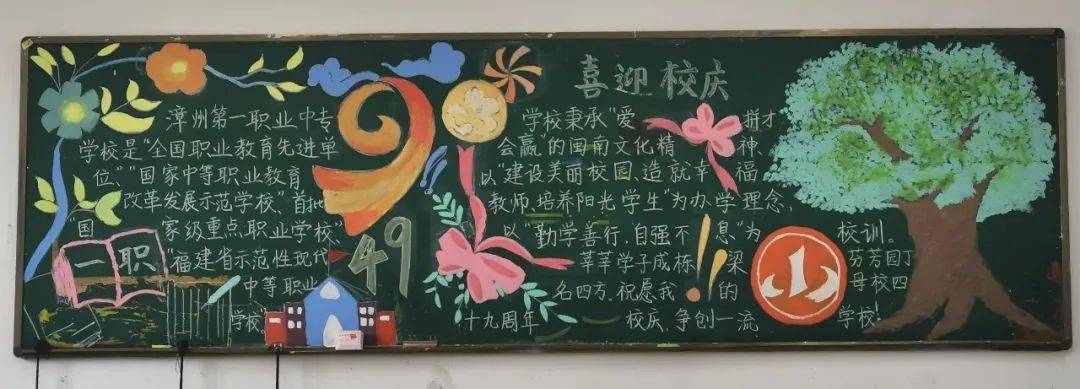 喜迎校庆
漳州第一职业中专
学校是“全国职业教育先进单
位”“国家中等职业教育
改革发展示范学校”、首批
国家级重点职业学校”
“福建省示范性现代
中等职业
学校。
一职
49
学校秉承“爱拼才
会赢”的闽南文化精神、
以“建设美丽校园、造就幸福
教师、培养阳光学生”为办学理念、
以“勤学善行,自强不息”为校训。
莘莘学子成栋梁
芬芳园丁
名四方,祝愿我的母校四
十九周年校庆、争创一流学校!